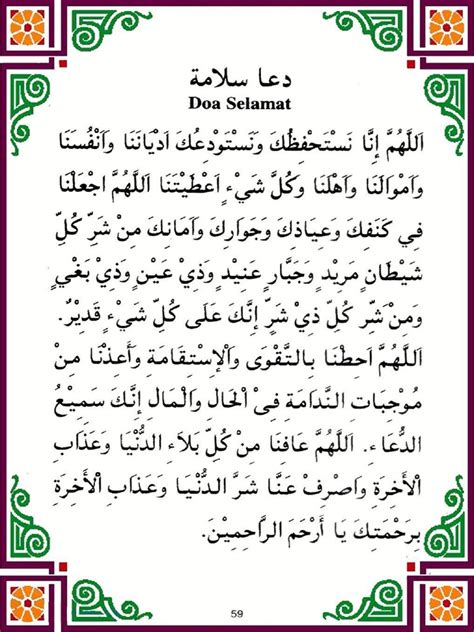 دعا سلامة
Doa Selamat
اَللَّهُمَّ إِنَّا نَسْتَحْفِظُكَ وَنَسْتَوْدِعُكَ اَدْيَانَنَا وَاَنْفُسَنَا
وَاَمْوَالَنَا وَاَهْلَنَا وَكُلَّ شَيْءٍ اَعْطَيْتَنَا اَللَّهُمَّ اجْعَلْنَا
فِي كَنَفِكَ وَعِيَاذِكَ وَجِوَارِكَ وَاَمَانِكَ مِنْ شَرِّ كُلِّ
شَيْطَانٍ مَرِيْدٍ وَجَبَّارٍ عَنِيْدٍ وَذِيْ عَيْنٍ وَذِيْ بَغْيٍ
وَمِنْ شَرِّ كُلِّ ذِيْ شَرٍّ إِنَّكَ عَلَى كُلِّ شَيْءٍ قَدِيْرٌ.
اَللَّهُمَّ اَحِطْنَا بِالتَّقْوَى وَالْاِسْتِقَامَةِ وَأَعِذْنَا مِنْ
مُوْجِبَاتِ النَّدَامَةِ فِىْ الْحَالِ وَالْمَالِ إِنَّكَ سَمِيْعُ
الدُّعَاءِ. اَللَّهُمَّ عَافِنَا مِنْ كُلِّ بَلاَءِ الدُّنْيَا وَعَذَابِ
الْأَخِرَةِ وَاصْرِفْ عَنَّا شَرَّ الدُّنْيَا وَعَذَابَ الْأَخِرَةِ
بِرَحْمَتِكَ يَا أَرْحَمَ الرَّاحِمِيْنَ.
59